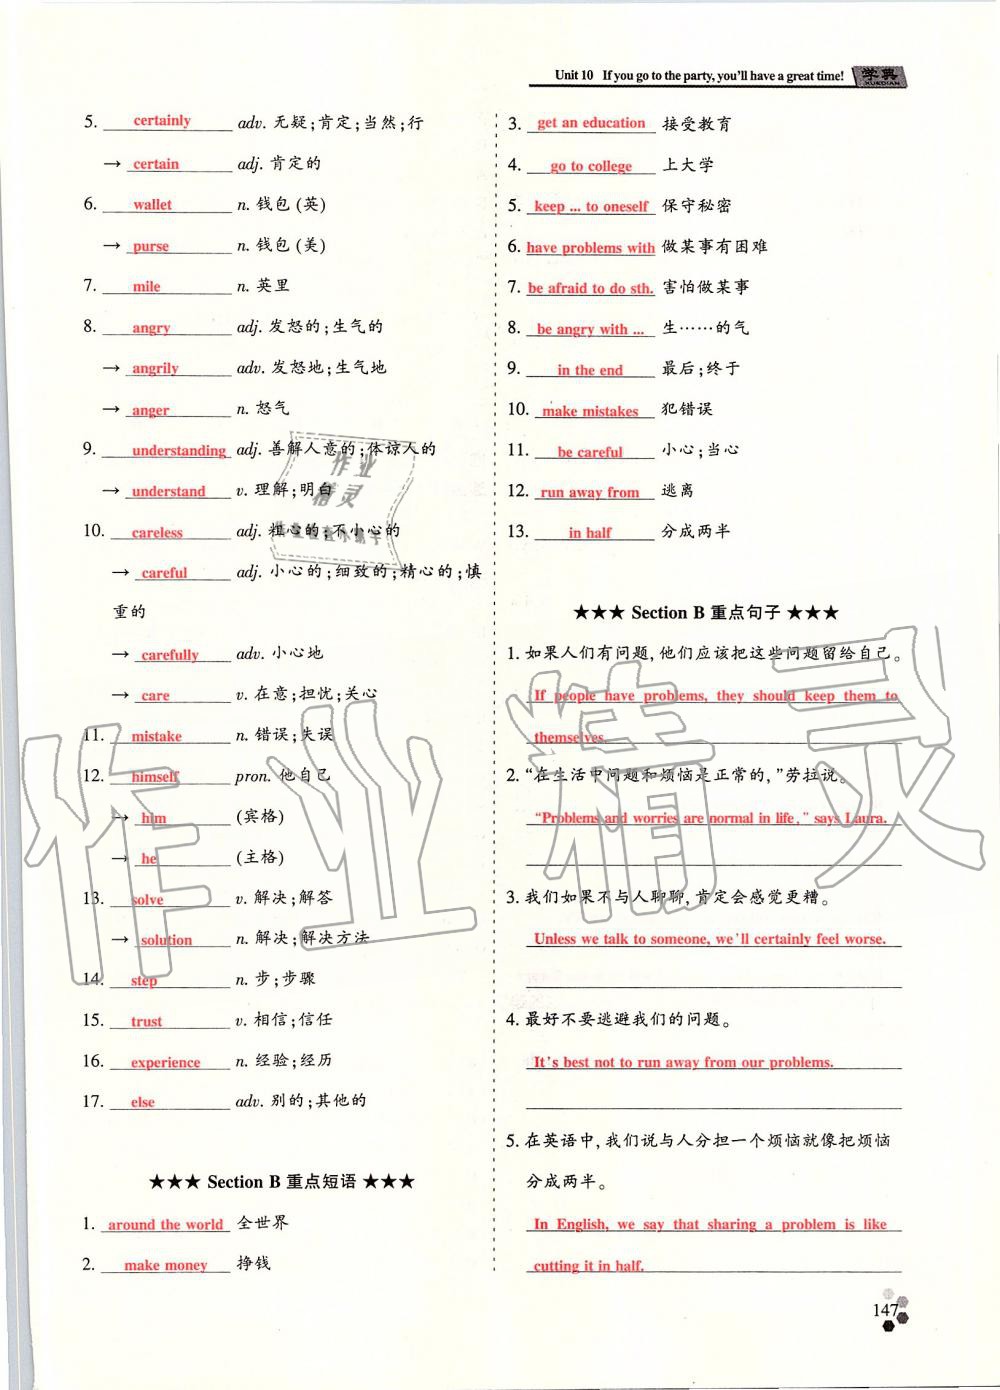 Unit 10 If you go to the party, you'll have a great time! 学典
XUEDIAN
5. certainly adv. 无疑;肯定;当然;行
→ certain adj. 肯定的
6. wallet n. 钱包(英)
→ purse n. 钱包(美)
7. mile n. 英里
8. angry adj. 发怒的;生气的
→ angrily adv. 发怒地;生气地
→ anger n. 怒气
9. understanding adj. 善解人意的;体谅人的
→ understand v. 理解;明白
10. careless adj. 粗心的;不小心的
→ careful adj. 小心的;细致的;精心的;慎
重的
→ carefully adv. 小心地
→ care v. 在意;担忧;关心
11. mistake n. 错误;失误
12. himself pron. 他自己
→ him (宾格)
→ he (主格)
13. solve v. 解决;解答
→ solution n. 解决;解决方法
14. step n. 步;步骤
15. trust v. 相信;信任
16. experience n. 经验;经历
17. else adv. 别的;其他的
★★★ Section B 重点短语 ★★★
1. around the world 全世界
2. make money 挣钱
3. get an education 接受教育
4. go to college 上大学
5. keep ... to oneself 保守秘密
6. have problems with 做某事有困难
7. be afraid to do sth. 害怕做某事
8. be angry with ... 生……的气
9. in the end 最后;终于
10. make mistakes 犯错误
11. be careful 小心;当心
12. run away from 逃离
13. in half 分成两半
★★★ Section B 重点句子 ★★★
1. 如果人们有问题,他们应该把这些问题留给自己。
If people have problems, they should keep them to
themselves.
2. “在生活中问题和烦恼是正常的,”劳拉说。
“Problems and worries are normal in life,” says Laura.
3. 我们如果不与人聊聊,肯定会感觉更糟。
Unless we talk to someone, we'll certainly feel worse.
4. 最好不要逃避我们的问题。
It's best not to run away from our problems.
5. 在英语中,我们说与人分担一个烦恼就像把烦恼
分成两半。
In English, we say that sharing a problem is like
cutting it in half.
147
作业
精灵
作业精灵